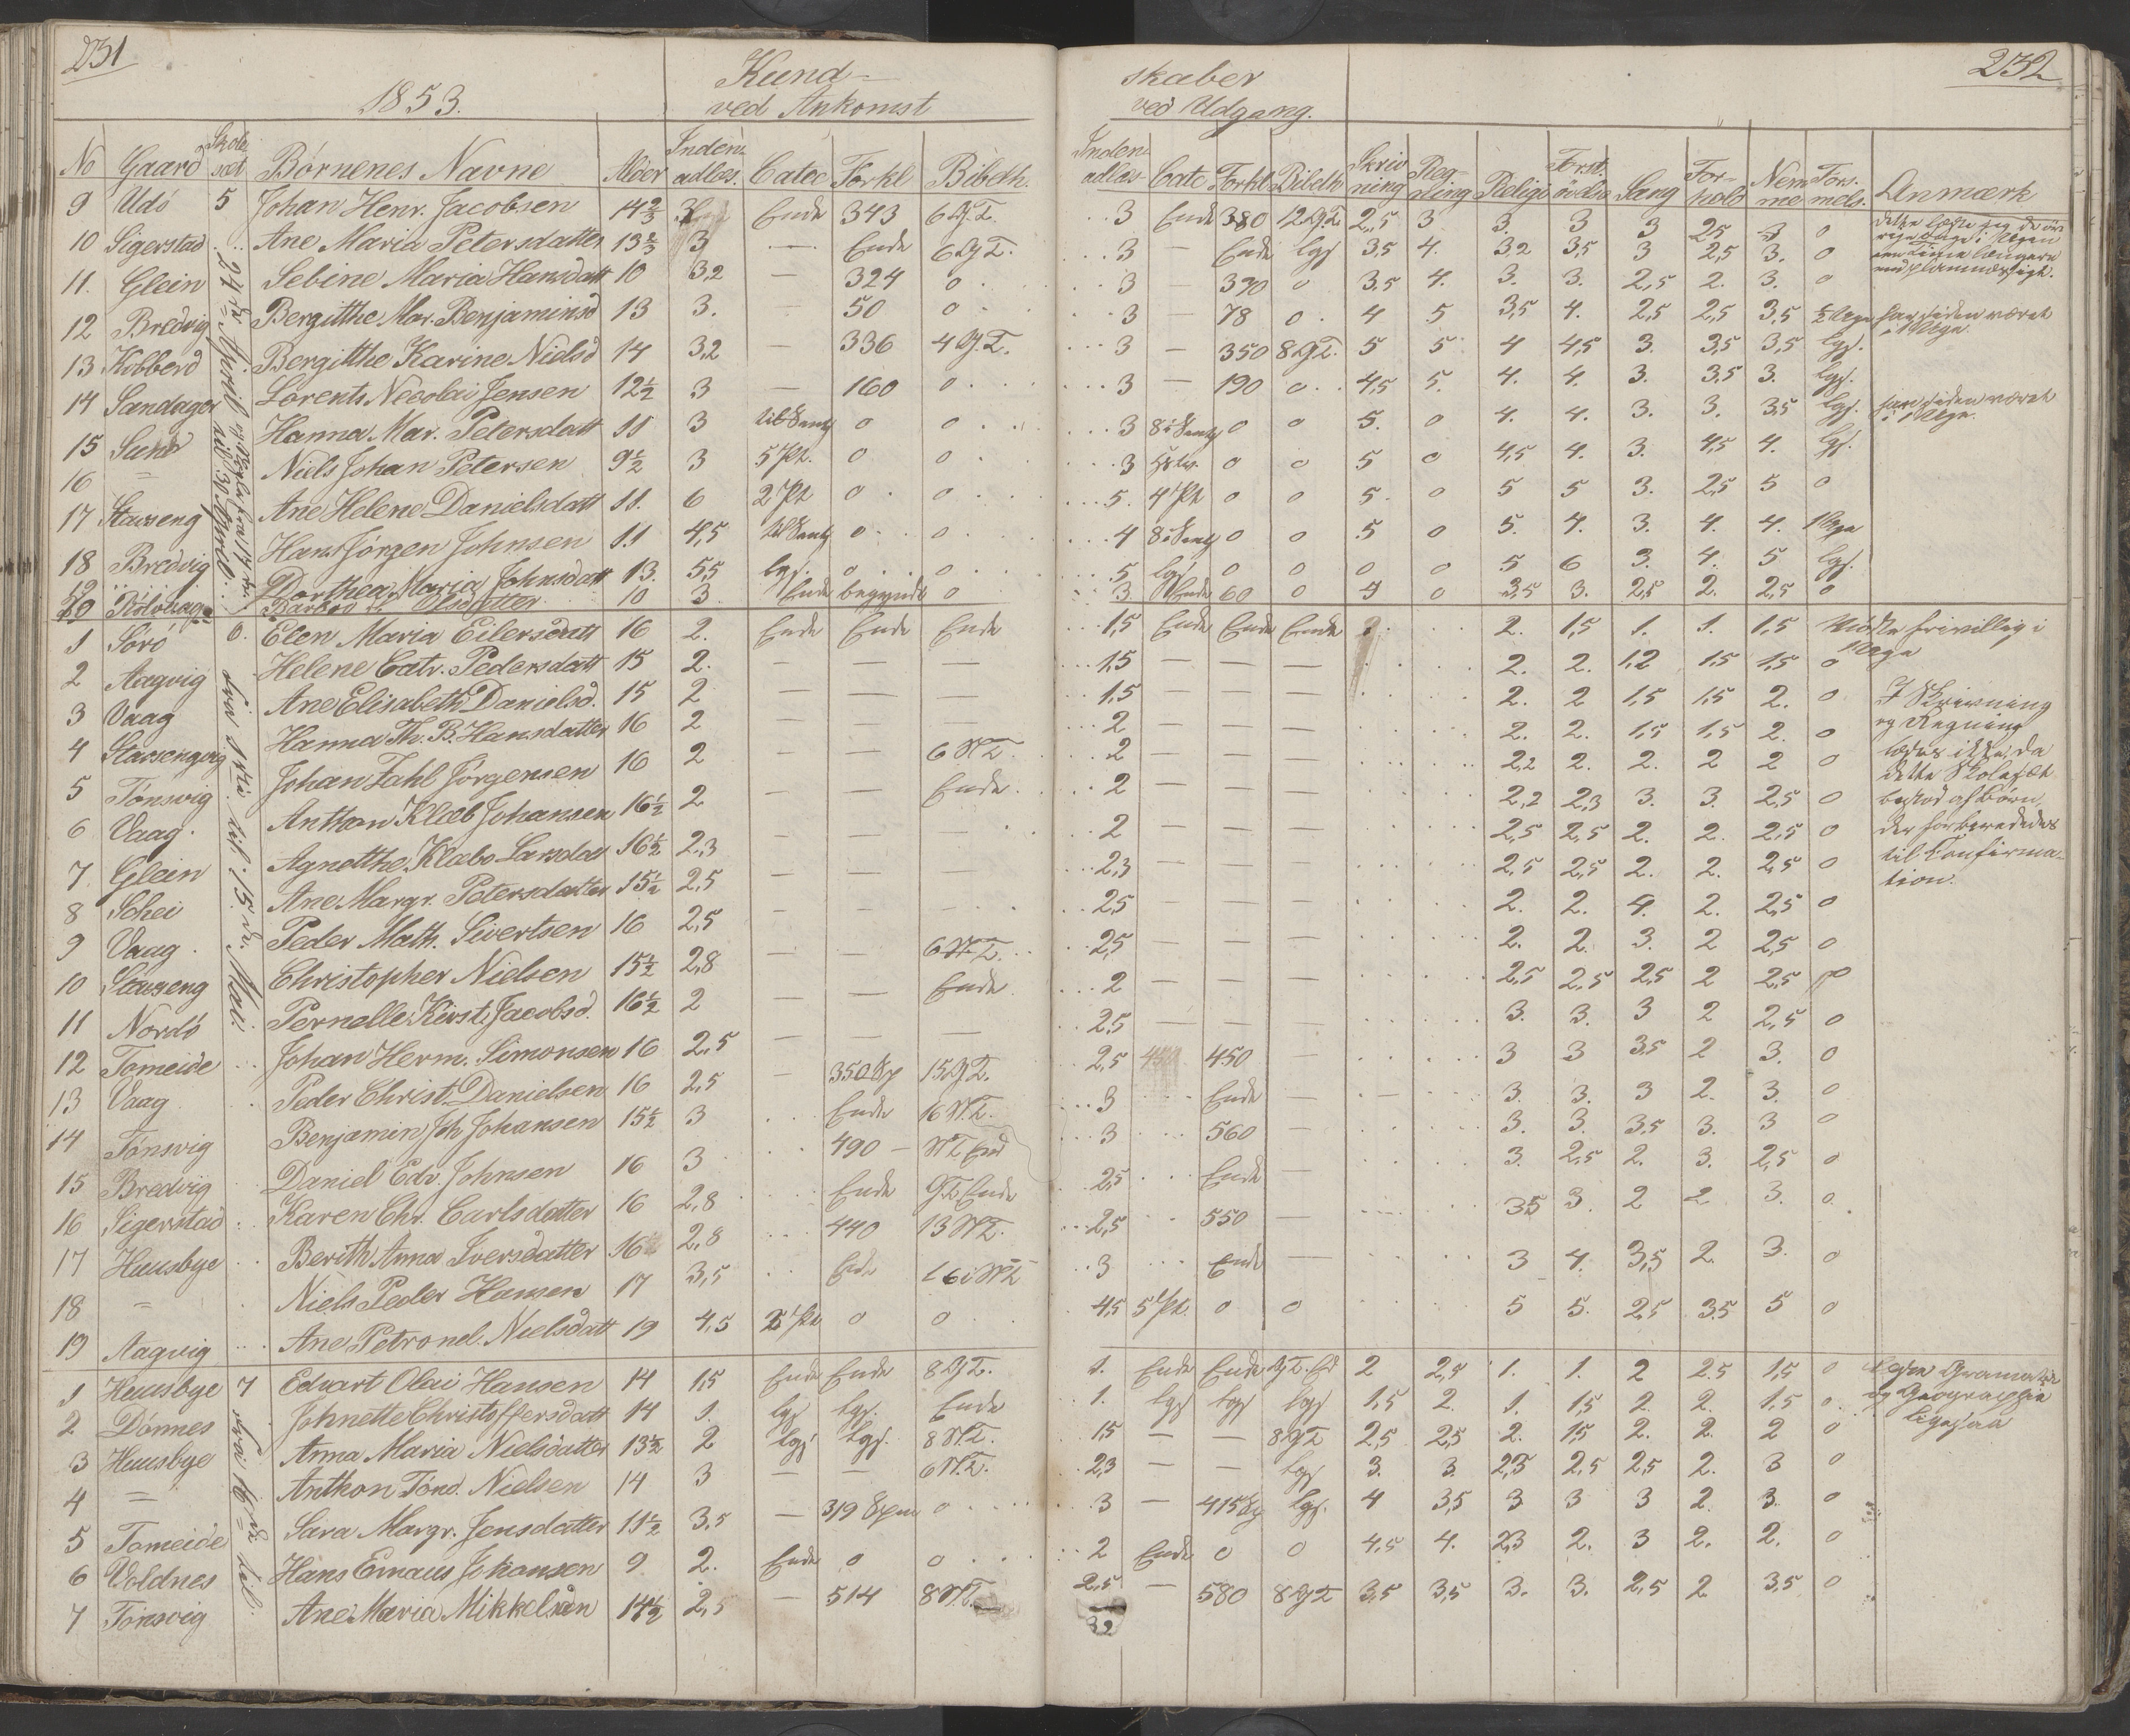 231
1853.
Kund-
ved Ankomst
skaber
ved Udgang.
232
No Gaard Skolesæt Börnenes Navne Alder Indenadlæs. Catec Forkl Bibelh. Indenadlæs Catc Forkl Bibelh Skrivning Regning Religi Forst.övelse Sang Forhold Nemme Forsmels. Anmærk
9 Udö 5 Johan Henr. Jacobsen 14 2/3 Ende 343 6 G.T. 3 Ende 380 12 G.T. 2,5 3 3. 3 3 2,5 3 0
10 Sigerstad Ane Maria Petersdatter 13 2/3 3 — Ende 6 G.T. 3 — Ende lgs 3,5 4. 3,2 3,5 3 2,5 3. 0
11. Glein Sebine Maria Hansdatt 10 3,2 — 324 0 3 — 390 0 3.5 4. 3. 3. 2,5 2. 3. 0
12 Bredvig Bergitthe Mar. Benjaminsd 13 3. — 50 0 3 — 78 0 4 5 3,5 4. 2,5 2,5 3,5 har siden været i 1 Uge.
13 Kobberd Bergitthe Karine Nielsd 14 3,2 — 336 4 G.T. 3 — 350 8 G.T. 5 5 4 4,5 3. 3,5 3,5 lgs.
14 Sandager Lorents Necolai Jensen 12 1/2 3 — 160 0 3 — 190 0 4,5 5. 4. 4. 3. 3.5 3. lgs.
15 Sund Hanna Mar. Petersdatt 11 3 0 0 3 0 0 5. 0 4. 4. 3. 3. 3,5 lgs. har siden været i 1 Uge.
16 = Niels Johan Petersen 9 1/2 3 5 Pt. 0 0 3 0 0 5 0 4,5 4. 3. 4,5 4. lgs.
17 Stavseng Ane Helene Danielsdatt 11. 6 2 Pt 0 0 5. 4 Pt 0 0 5. 0 5 5 3. 2,5 5 0
18 Bredvig Hans Jörgen Johnsen 11 4,5 0 0 4 0 0 5 0 5. 4. 3. 4. 4. 1 Uge
Dorthea Maria Johnsdatt 13. 5,5 lgs. 0 0 5 lgs 0 0 0 0 5 6 3. 4. 5 lgs.
10 3 Ende begyndt 0 3 Ende 60 0 0 3,5 3. 2,5 2. 2,5 0
24de April
til 30 April
1 Sörö 6. Elen Maria Eilersdatt 16 2. Ende Ende Ende 1,5 Ende Ende Ende 2. 1,5 1. 1. 1,5 Mödte frivillig i 1 Uge
2 Aagvig Helene Catr. Pedersdatt 15 2. — — — 1.5 — — — 2. 2. 1,2 1.5 1,5 0
3 Vaag Ane Elisabeth Danielsd. 15 2 — — — 1.5 — — — 2. 2 1,5 1,5 2. 0 I Skrivning
4 Stavsengvig Hanna Th. B. Hansdatter 16 2 — — — 2 — — — 2. 2. 1,5 1,5 2. 0 og Regning
5 Tönsvig Johan Zahl Jörgensen 16 2 — — 6 N.T. 2 — — — 2,2 2. 2. 2 2 0 læses ikke, da
6 Vaag. Anthon Klæb Johansen 16 1/2 2 — — Ende 2 — — — 2,2 2,3 3. 3. 2,5 0 dette Skolesæt
7 Glein Agnetthe Klæbo Larsdat 16 1/2 2.3 — — — 2 — — — 2,5 2,5 2. 2. 2,5 0 bestod af Börn,
8 Schei Ane Margr. Petersdatter 15 1/2 2,5 — — — 2,3 — — — 2,5 2,5 2. 2. 2,5 0 der forberededes
9 Vaag Peder Math. Sivertsen 16 2,5 — — — 2,5 — — — 2. 2. 4. 2. 2,5 0 til Confirma-
10 Stavseng Christopher Nielsen 15 1/2 2,8 — — 6 N.T. 2,5 — — — 2. 2. 3. 2 2,5 0 tion.
11 Nordö Pernelle Kirst. Jacobsd. 16 1/2 2 — — Ende 2 — — — 2,5 2.5 2,5 2 2,5 0
12 Tomeide Johan Herm. Simonsen 16 2,5 — — — 2,5 — — — 3. 3. 3 2 2,5 0
13 Vaag Peder Christ. Danielsen 16 2,5 — 350 Sp 15 G.T. 2,5 450 — 3 3 3,5 2 3. 0
14 Tönsvig Benjamin Joh Johansen 15 1/2 3 Ende 16 N.T. 3 Ende — 3. 3. 3 2. 3. 0
15 Bredvig Daniel Edv. Johnsen 16 3 490 — N.T. End 3 560 — 3. 3. 3.5 3. 3 0
16 Sigerstad Karen Chr. Carlsdatter 16 2,8 Ende G.T. Ende 2,5 Ende — 3. 2,5 2. 3. 2,5 0
17 Huusbye Berith Anna Iversdatter 16 2,8 440 13 N.T. 2,5 550 — 3,5 3. 2 2. 3. 0
18 = Niels Peder Hansen 17 3,5 Ende 16 i N.T. 3 Ende — 3 4. 3,5 2. 3. 0
19 Aagvig Ane Petronel. Nielsdatt 19 4,5 0 0 4,5 5 Pt. 0 0 5 5. 2,5 3.5 5 0
til 15de Mai.
1 Huusbye 7 Edvart Olai Hansen 14 1,5 Ende Ende 8 G.T. 1. Ende Ende G.T. Ed 2 2,5 1. 1. 2 2.5 1,5 0 Gramatik
2 Dönnes Johnette Christoffersdatt 14 1. lgs lgs. Ende 1. lgs lgs lgs 1,5 2. 1. 1,5 2. 2. 1,5 0 og Geographie
3 Huusbye Anna Maria Nielsdatter 13 1/2 2 lgs lgs. 8 N.T. 1,5 — — 8 G.T. 2,5 2,5 2. 1,5 2. 2. 2 0 ligesaa
4 = Anthon Tönd. Nielsen 14 3 — — 6 N.T. 2,3 — — lgs 3. 3. 2,5 2.5 2,5 2. 3 0
5 Tomeide Sara Margr. Jensdatter 11 1/2 3,5 — 319 0 3 — 415 lgs. 4 3,5 3 3 3 2. 3. 0
6 Voldnes Hans Emaus Johansen 9 2. Ende 0 0 2 Ende 0 0 4,5 4. 2,3 2. 3 2. 2. 0
7 Tönsvig Ane Maria Mikkelsen 14 1/2 2,5 — 514 8 N.T. 2,5 — 580 8 G.T. 3,5 3,5 3. 3. 2,5 2 3,5 0
Fra 16de til